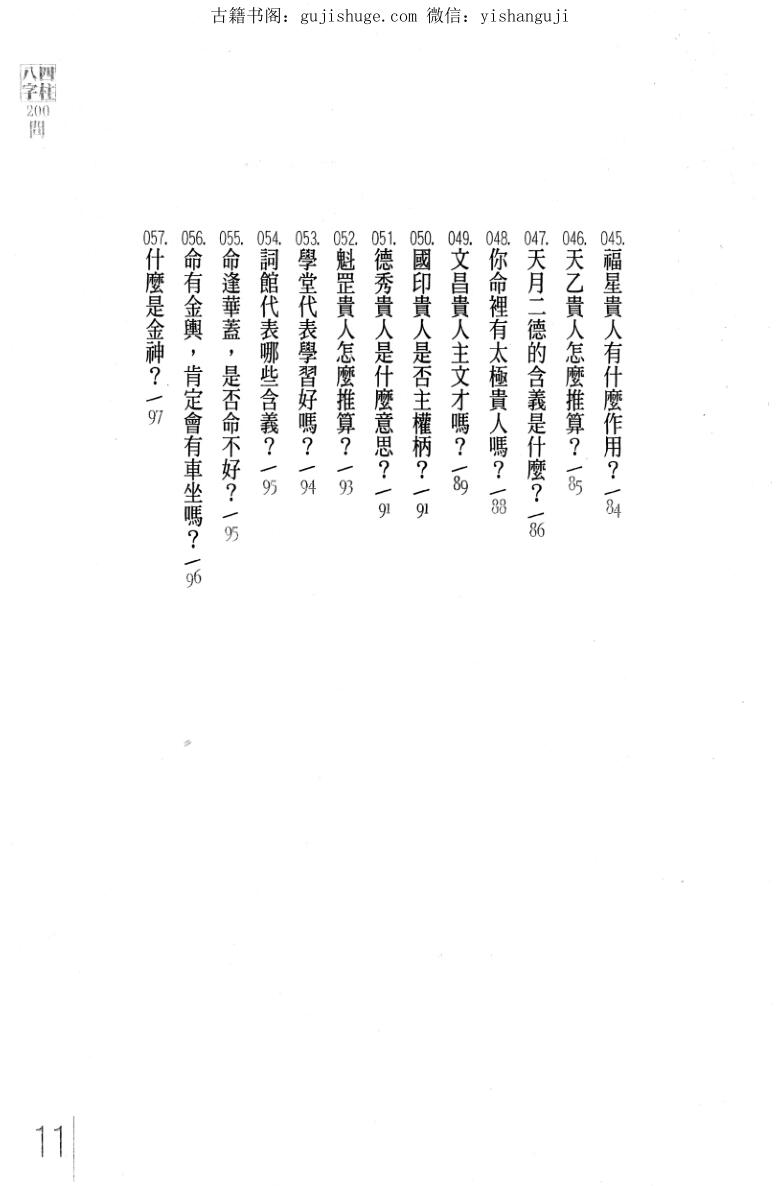 古籍书阁：gujishuge.com 微信：yishanguji
四柱
八字
200
問
045.福星貴人有什麼作用？／84
046.天乙貴人怎麼推算？／85
047.天月二德的含義是什麼？／86
048.你命裡有太極貴人嗎？／88
049.文昌貴人主文才嗎？／89
050.國印貴人是否主權柄？／91
051.德秀貴人是什麼意思？／91
052.魁罡貴人怎麼推算？／93
053.學堂代表學習好嗎？／94
054.詞館代表哪些含義？／95
055.命逢華蓋，是否命不好？／95
056.命有金輿，肯定會有車坐嗎？／96
057.什麼是金神？／97
11